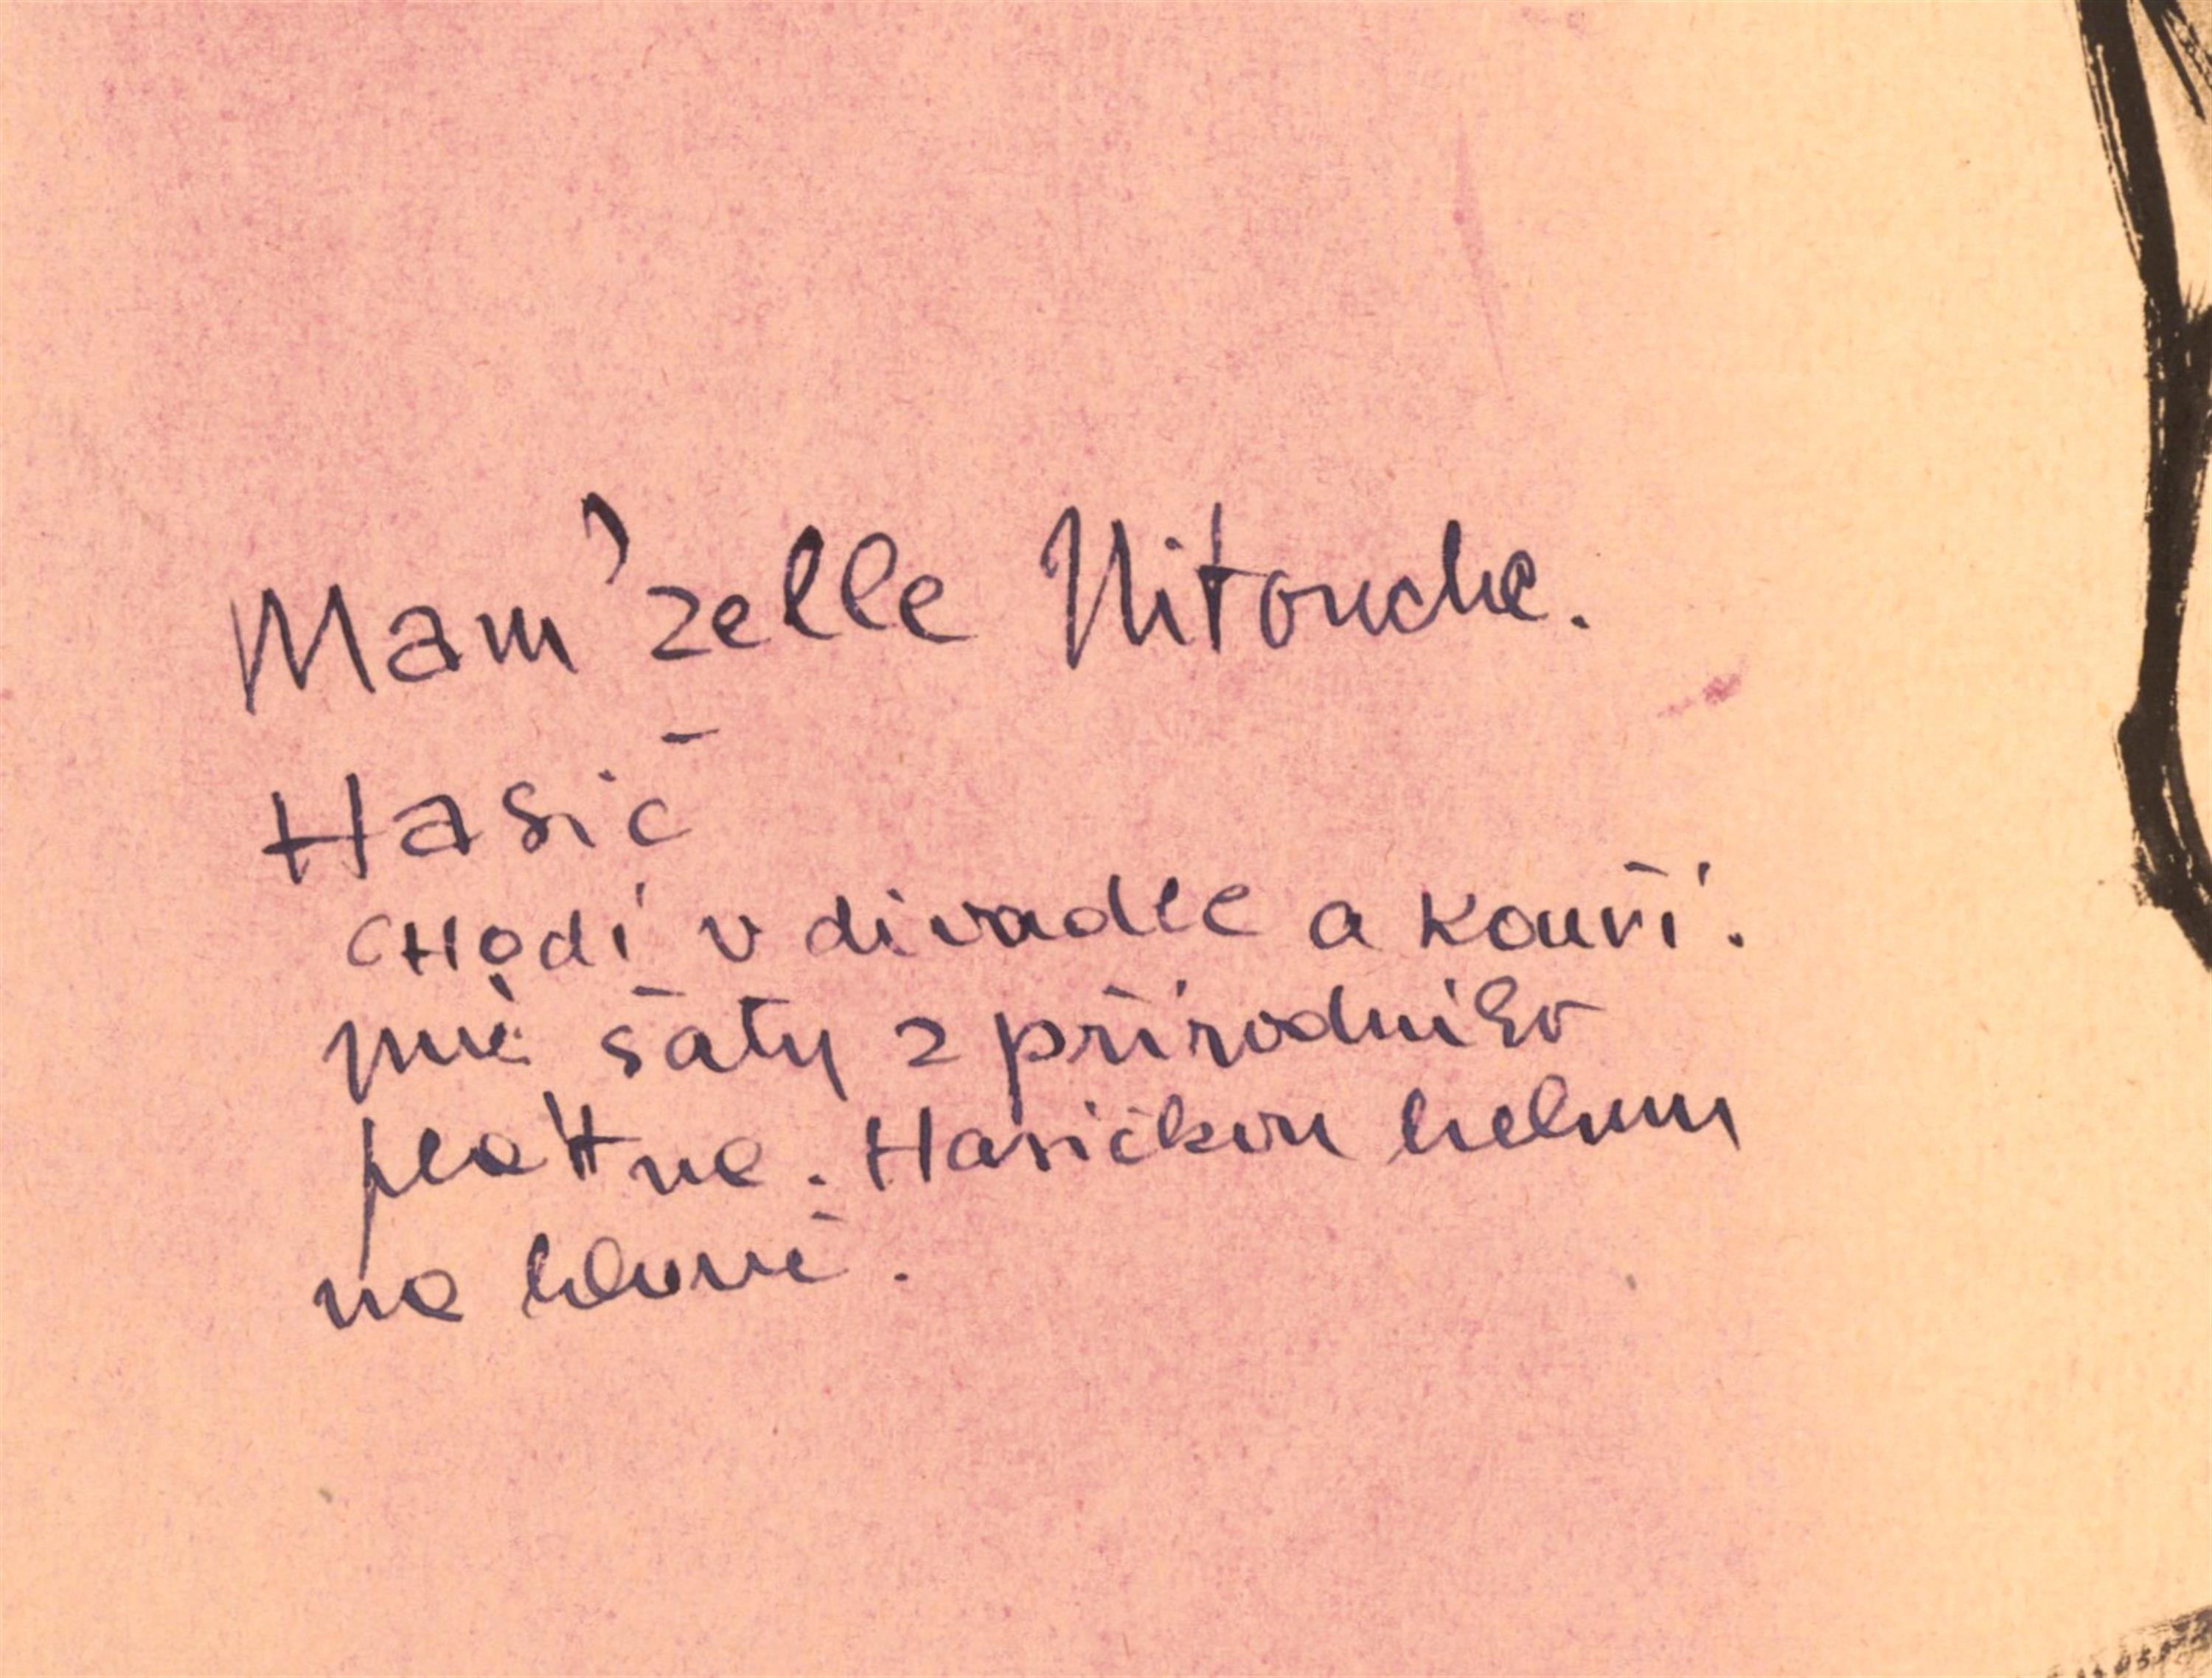 Mam'zelle Nitouche.
Hasič
CHodí v divadle a kouří.
má šaty z přírodniho
plaHna. Hasičkou helmu
na hlavě.